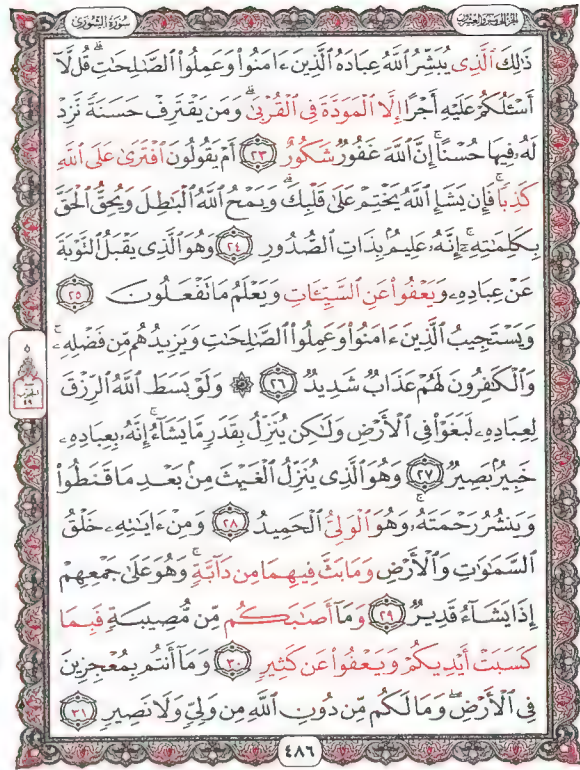 الجزء الخامس والعشرون
سورة الشورى
ذَٰلِكَ ٱلَّذِى يُبَشِّرُ ٱللَّهُ عِبَادَهُ ٱلَّذِينَ ءَامَنُوا۟ وَعَمِلُوا۟ ٱلصَّـٰلِحَـٰتِ ۗ قُل لَّآ
أَسْـَٔلُكُمْ عَلَيْهِ أَجْرًا إِلَّا ٱلْمَوَدَّةَ فِى ٱلْقُرْبَىٰ ۗ وَمَن يَقْتَرِفْ حَسَنَةً نَّزِدْ
لَهُۥ فِيهَا حُسْنًا ۚ إِنَّ ٱللَّهَ غَفُورٌ شَكُورٌ ٢٣ أَمْ يَقُولُونَ ٱفْتَرَىٰ عَلَى ٱللَّهِ
كَذِبًا ۖ فَإِن يَشَإِ ٱللَّهُ يَخْتِمْ عَلَىٰ قَلْبِكَ ۗ وَيَمْحُ ٱللَّهُ ٱلْبَـٰطِلَ وَيُحِقُّ ٱلْحَقَّ
بِكَلِمَـٰتِهِۦٓ ۚ إِنَّهُۥ عَلِيمٌۢ بِذَاتِ ٱلصُّدُورِ ٢٤ وَهُوَ ٱلَّذِى يَقْبَلُ ٱلتَّوْبَةَ
عَنْ عِبَادِهِۦ وَيَعْفُوا۟ عَنِ ٱلسَّيِّـَٔاتِ وَيَعْلَمُ مَا تَفْعَلُونَ ٢٥
وَيَسْتَجِيبُ ٱلَّذِينَ ءَامَنُوا۟ وَعَمِلُوا۟ ٱلصَّـٰلِحَـٰتِ وَيَزِيدُهُم مِّن فَضْلِهِۦ ۚ
وَٱلْكَـٰفِرُونَ لَهُمْ عَذَابٌ شَدِيدٌ ٢٦ ۞ وَلَوْ بَسَطَ ٱللَّهُ ٱلرِّزْقَ
لِعِبَادِهِۦ لَبَغَوْا۟ فِى ٱلْأَرْضِ وَلَـٰكِن يُنَزِّلُ بِقَدَرٍ مَّا يَشَآءُ ۚ إِنَّهُۥ بِعِبَادِهِۦ
خَبِيرٌۢ بَصِيرٌ ٢٧ وَهُوَ ٱلَّذِى يُنَزِّلُ ٱلْغَيْثَ مِنۢ بَعْدِ مَا قَنَطُوا۟
وَيَنشُرُ رَحْمَتَهُۥ ۚ وَهُوَ ٱلْوَلِىُّ ٱلْحَمِيدُ ٢٨ وَمِنْ ءَايَـٰتِهِۦ خَلْقُ
ٱلسَّمَـٰوَٰتِ وَٱلْأَرْضِ وَمَا بَثَّ فِيهِمَا مِن دَآبَّةٍ ۚ وَهُوَ عَلَىٰ جَمْعِهِمْ
إِذَا يَشَآءُ قَدِيرٌ ٢٩ وَمَآ أَصَـٰبَكُم مِّن مُّصِيبَةٍ فَبِمَا
كَسَبَتْ أَيْدِيكُمْ وَيَعْفُوا۟ عَن كَثِيرٍ ٣٠ وَمَآ أَنتُم بِمُعْجِزِينَ
فِى ٱلْأَرْضِ ۖ وَمَا لَكُم مِّن دُونِ ٱللَّهِ مِن وَلِىٍّ وَلَا نَصِيرٍ ٣١
الحزب
٤٩
٤٨٦